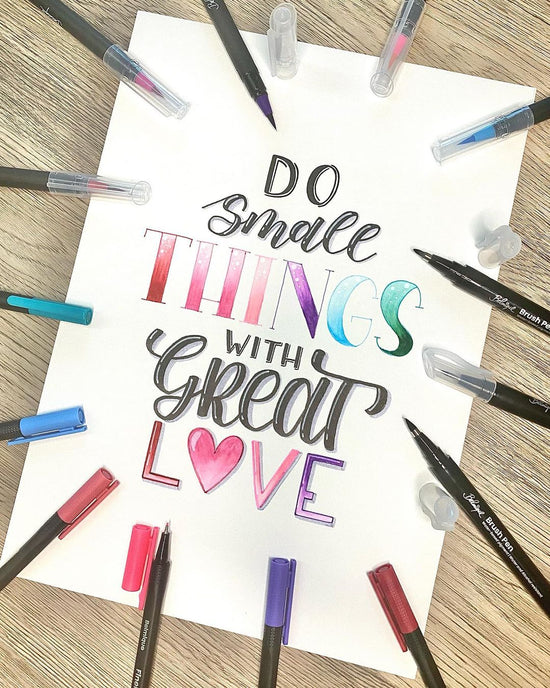 DO
small
THINGS
WITH
Great
LOVE
Brush Pen
Brush Pen